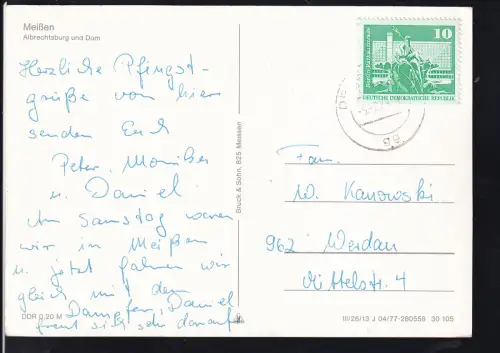 Meißen
Albrechtsburg und Dom
Herzliche Pfingst-
grüße von hier
senden Euch
Peter, Monika
u. Daniel.
Am Samstag waren
wir in Meißen
u. jetzt fahren wir
gleich mit dem
Dampfer, Daniel
freut sich sehr darauf
DDR 0,20 M
Bruck & Sohn, 825 Meissen
10
DEUTSCHE DEMOKRATISCHE REPUBLIK
Fam.
W. Kanowski
962 Werdau
Mittelstr. 4
III/26/13 J 04/77-280558 30 105